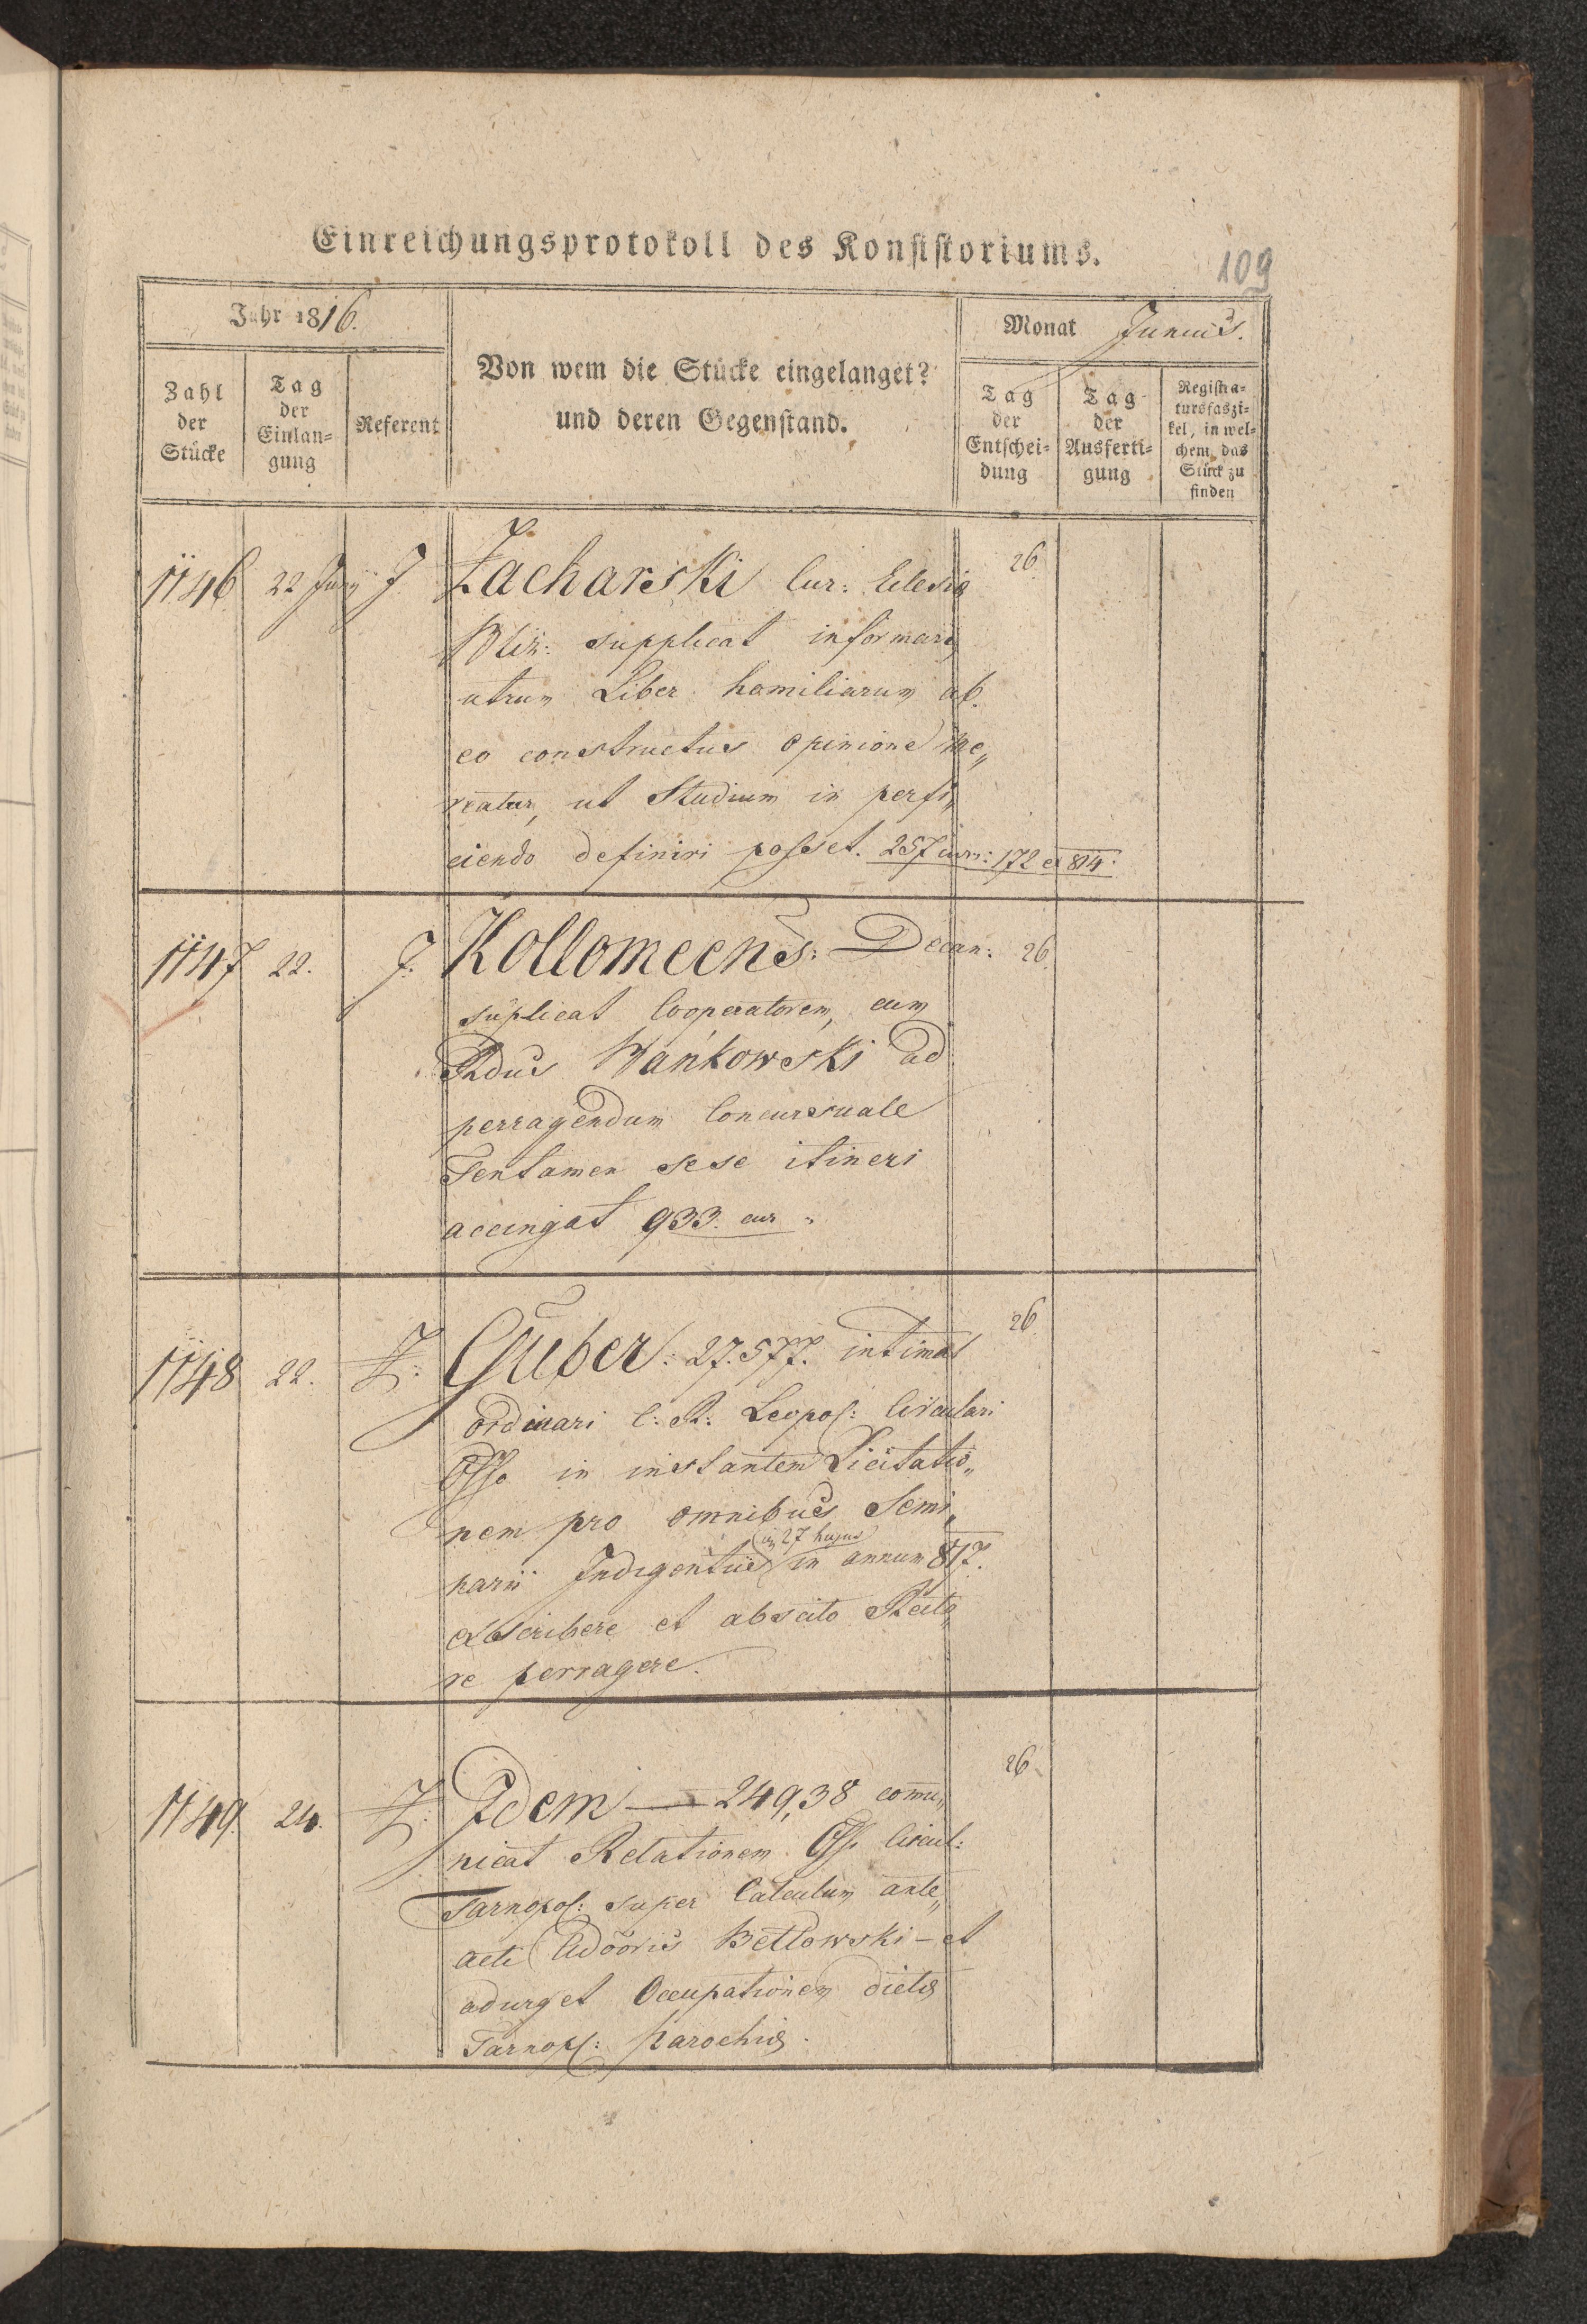 Einreichungsprotokoll des Konsistoriums.
109
Jahr 1816.
Monat Junius.
Zahl der Stücke
Tag der Einlan=gung
Referent
Von wem die Stücke eingelanget?
und deren Gegenstand.
Tag der Entschei=dung
Tag der Ausferti=gung
Registra=tursfaszi=kel, in wel=chem das Stück zu finden
1146 22 Juny J. Zacharski Cur: Eclesiæ 26.
supplicat informari,
utrum Liber homiliarum ab
eo constructus opinione me„
reatur, ut Studium in perfi„
ciendo definiri posset. 257 curr: 172 ex 814.
1147 22. J. Kollomeens: Decan: 26.
suplicat Cooperatorem, cum
Rdus Wańkowski ad
perragendum Concursuale
Tentamen sese itineri
accingat 933. cur
1148 22. Guber: 27.577. intimat 26
ordinari C: R: Leopol: Circulari
Offo in instantem Licitatio„
nem pro omnibus Semi„
in 27 hujus
narii Indigentiis in annum 817.
exscribere et abscito
re perragere.
1149. 24. Idem — 249,38 comu„ 26.
nicat Relationem Offi Circul:
Tarnopol: super Calculum ante„
acti Adooris Betlowski – et
adurget Occupationem dictæ
Tarnopl: Parochiæ.